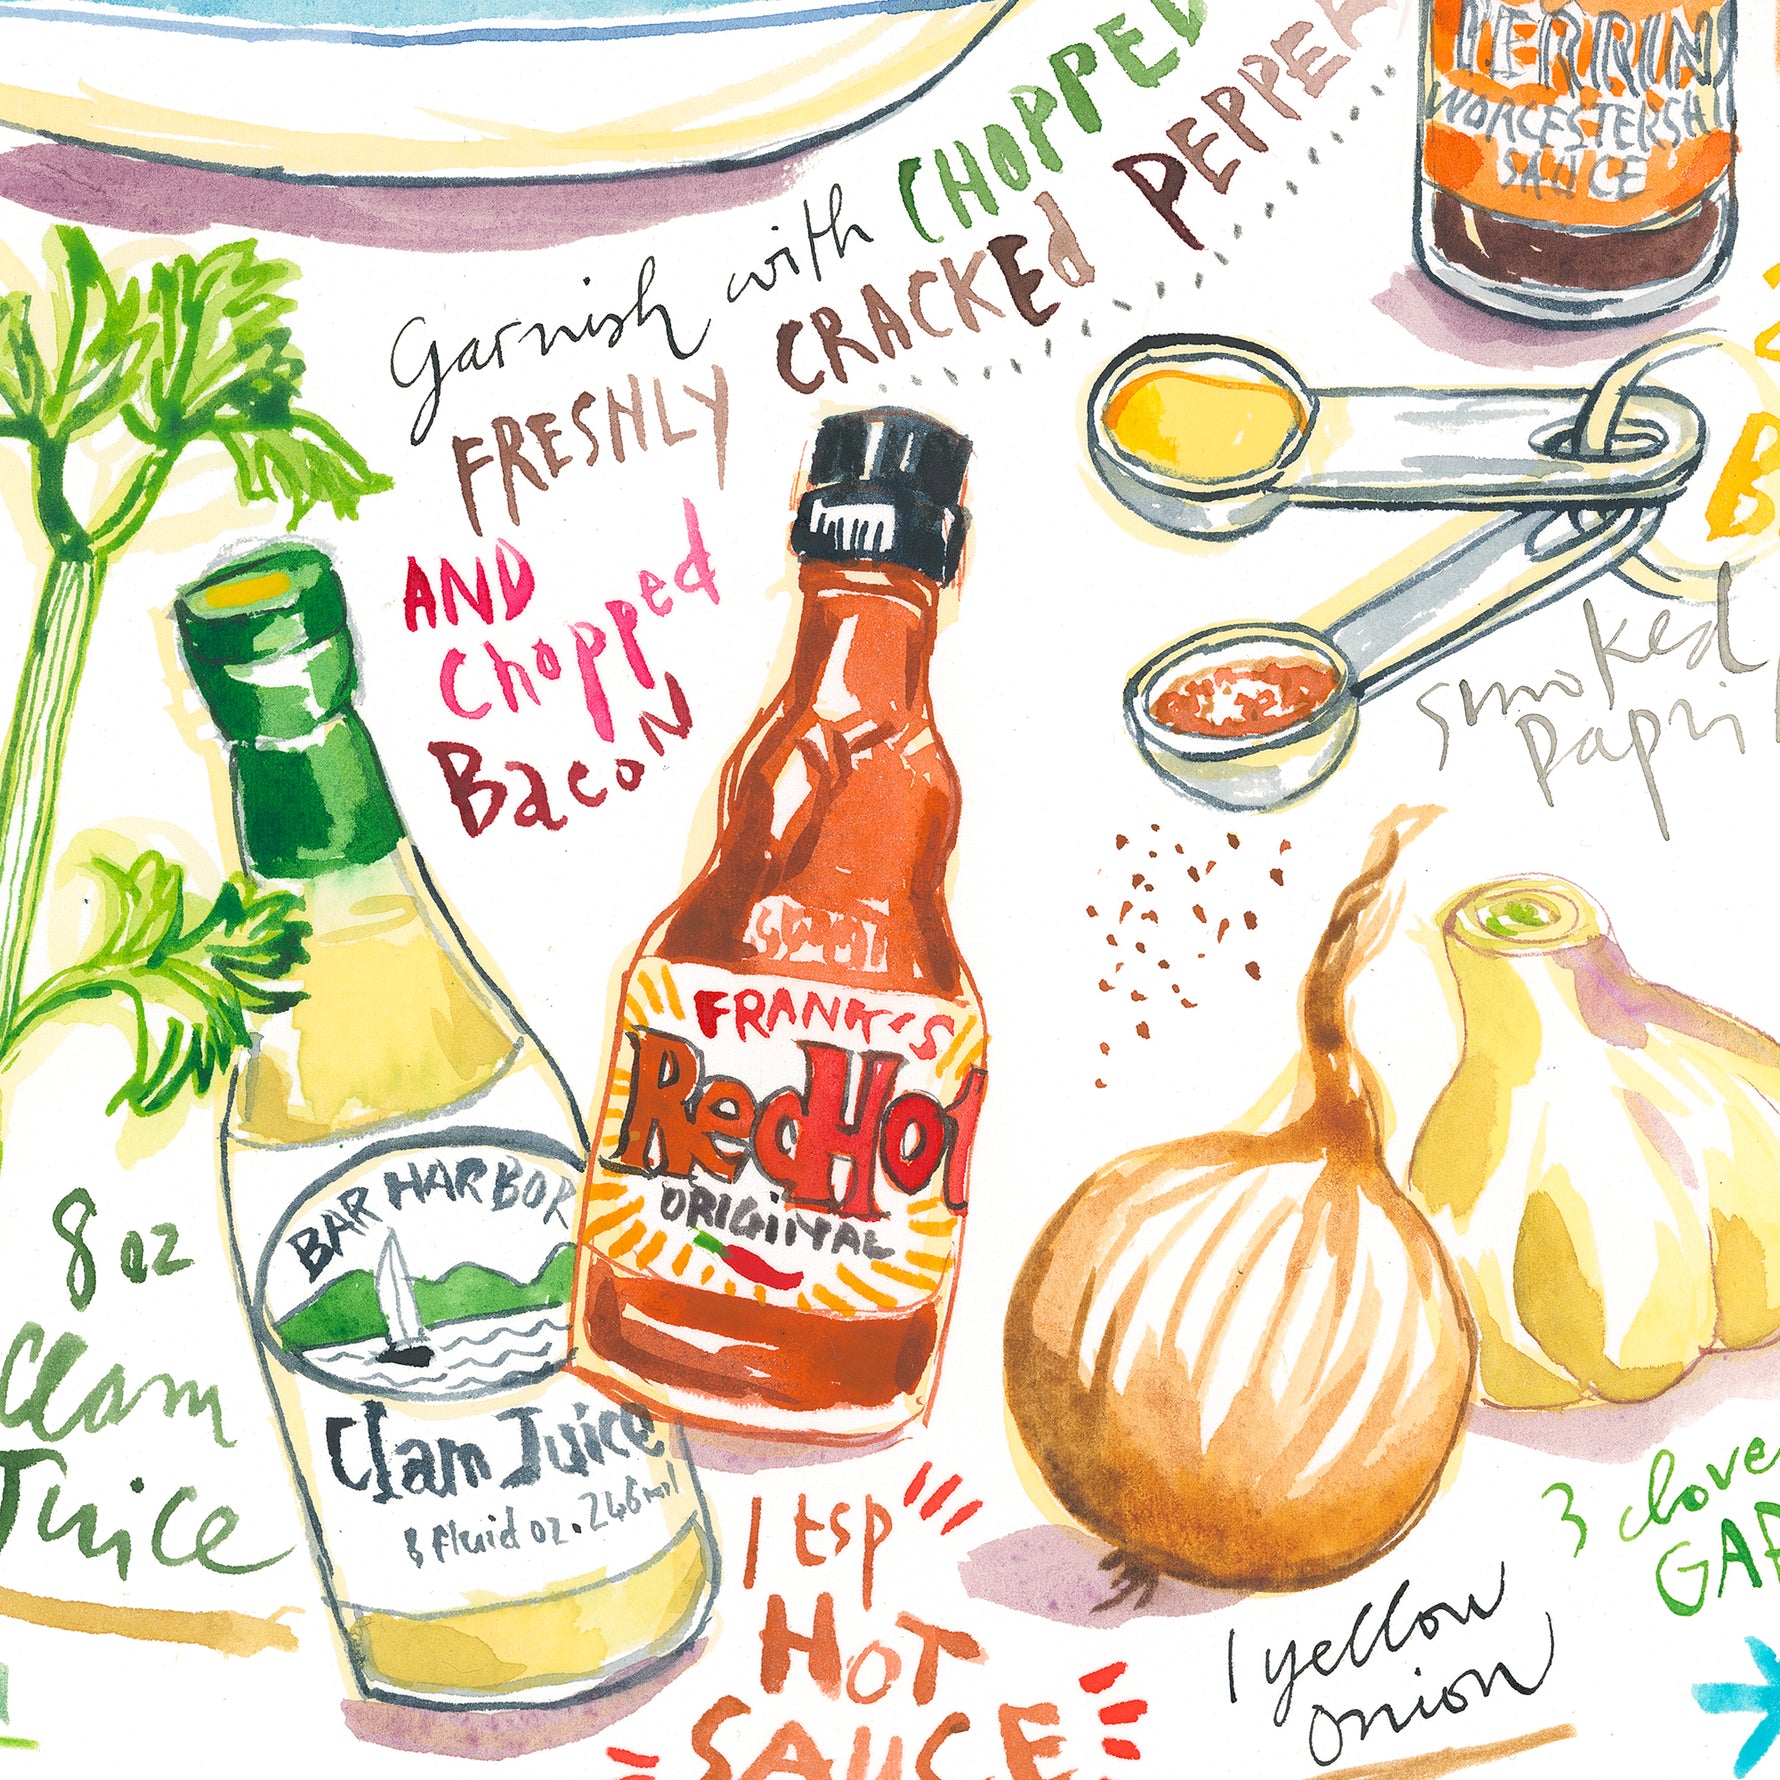 Garnish with CHOPPED
FRESHLY CRACKEd PEPPER
AND
Chopped
BacoN
PERRIN
WORCESTERSHI
SAUCE
B
smoked
papri
FRANK'S
RedHot
ORIGINAL
BAR HARBOR
Clam Juice
8 fluid oz. 246ml
8 oz
Clam
Juice
1 tsp
HOT
SAUCE
1 yellow
onion
3 clove
GAR